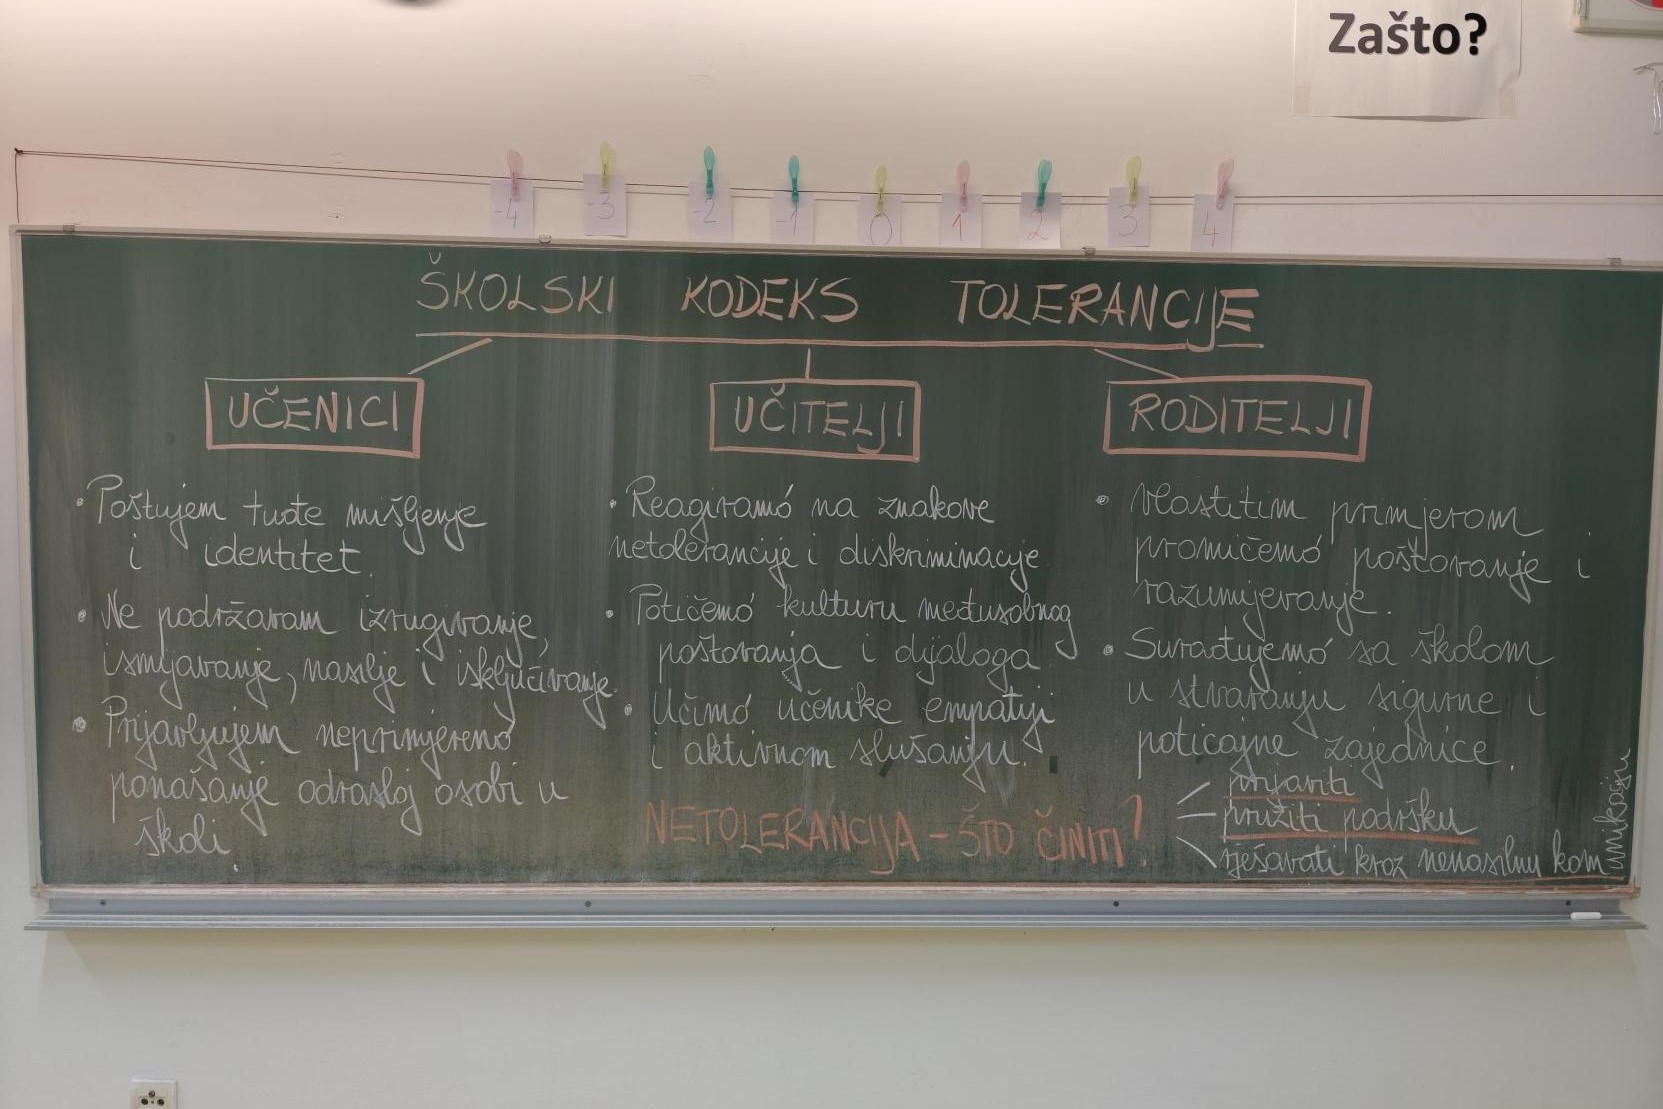 Zašto?
-4 -3 -2 -1 0 1 2 3 4
ŠKOLSKI KODEKS TOLERANCIJE
UČENICI
• Poštujem tuđe mišljenje
i identitet.
• Ne podržavam izrugivanje,
ismijavanje, nasilje i isključivanje.
• Prijavljujem neprimjereno
ponašanje odrasloj osobi u
školi.
UČITELJI
• Reagiramo na znakove
netolerancije i diskriminacije
• Potičemo kulturu međusobnog
poštovanja i dijaloga
• Učimo učenike empatiji
i aktivnom slušanju.
RODITELJI
• Vlastitim primjerom
promičemo poštovanje i
razumijevanje.
• Surađujemo sa školom
u stvaranju sigurne i
poticajne zajednice.
NETOLERANCIJA - ŠTO ČINITI?
prijaviti
pružiti podršku
rješavati kroz nenasilnu komunikaciju